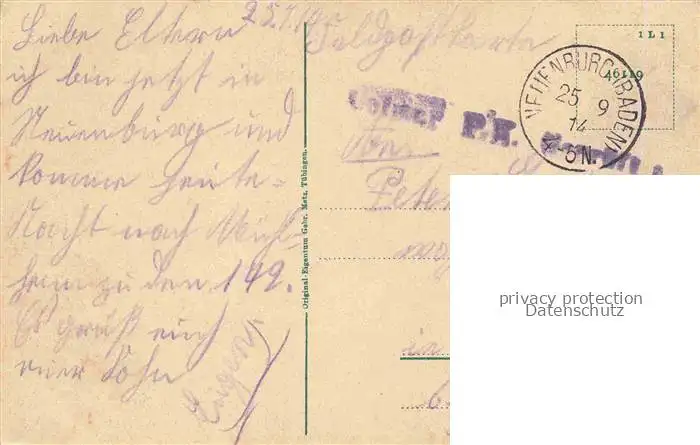 25.9.14
Liebe Eltern
ich bin jetzt in
Neuenburg und
komme heute
Nacht nach Müll-
heim zu den 142.
Es grüßt euch
euer Sohn
Eugen
Original-Eigentum Gebr. Metz, Tübingen.
Feldpostkarte
1 L 1
46119
NEUENBURG (BADEN)
25 9
14
5 N.
Peter
in
privacy protection
Datenschutz